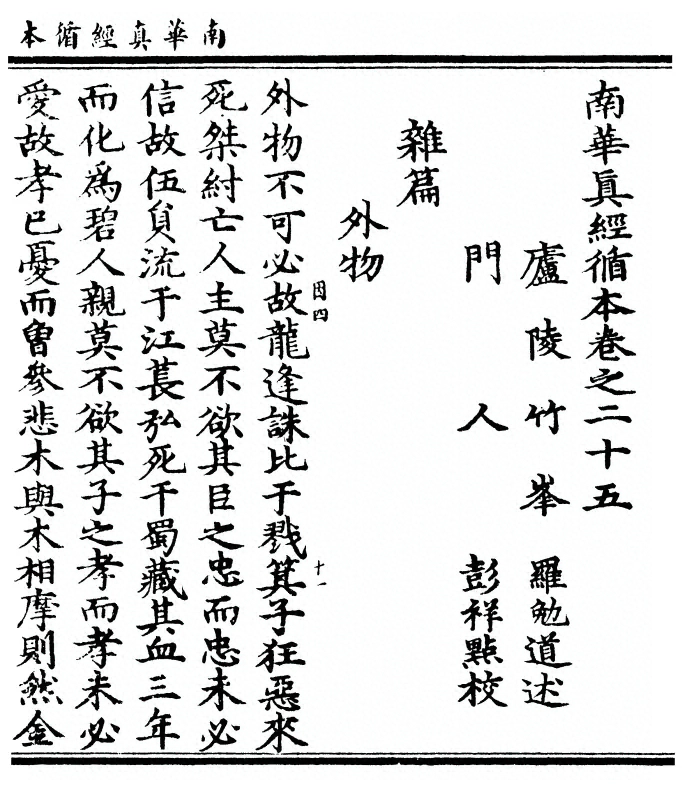 南華真經循本
南華真經循本卷之二十五
廬陵竹峯　羅勉道述
門人　彭祥點校
雜篇
外物
因四
十一
外物不可必故龍逢誅比干戮箕子狂惡來
死桀紂亡人主莫不欲其臣之忠而忠未必
信故伍員流于江萇弘死于蜀藏其血三年
而化爲碧人親莫不欲其子之孝而孝未必
愛故孝已憂而曾參悲木與木相摩則然金